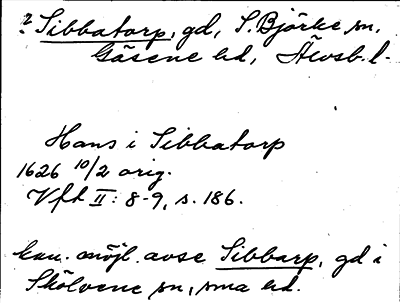 ? Sibbatorp, gd, S. Björke sn,
Gäsene hd, Älvsb. l.
Hans i Sibbatorp
1626 10/2 orig.
Vft II: 8-9, s. 186.
kan. möjl. avse Sibbarp, gd i
Skölvene sn, sma hd.